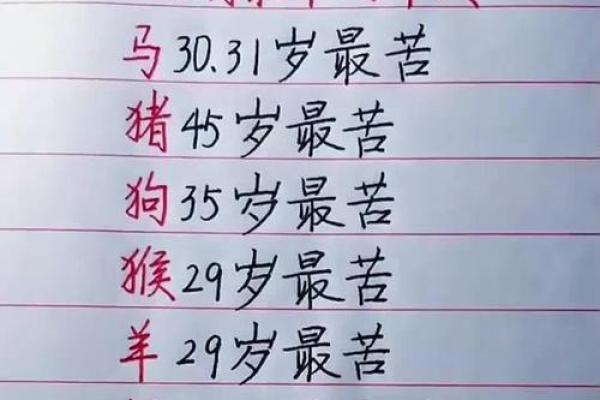 马30.31岁最苦
猪45岁最苦
狗35岁最苦
猴29岁最苦
羊29岁最苦